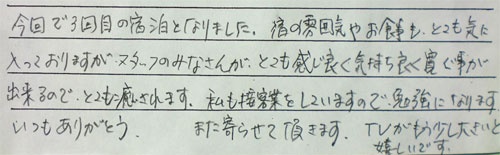 今回で3回目の宿泊となりました。宿の雰囲気やお食事も、とても気に
入っておりますが、スタッフのみなさんが、とても感じ良く気持ち良く寛ぐ事が
出来るので、とても癒されます。私も接客業をしていますので、勉強になります
いつもありがとう。 また寄らせて頂きます。 TVがもう少し大きいと
嬉しいです。